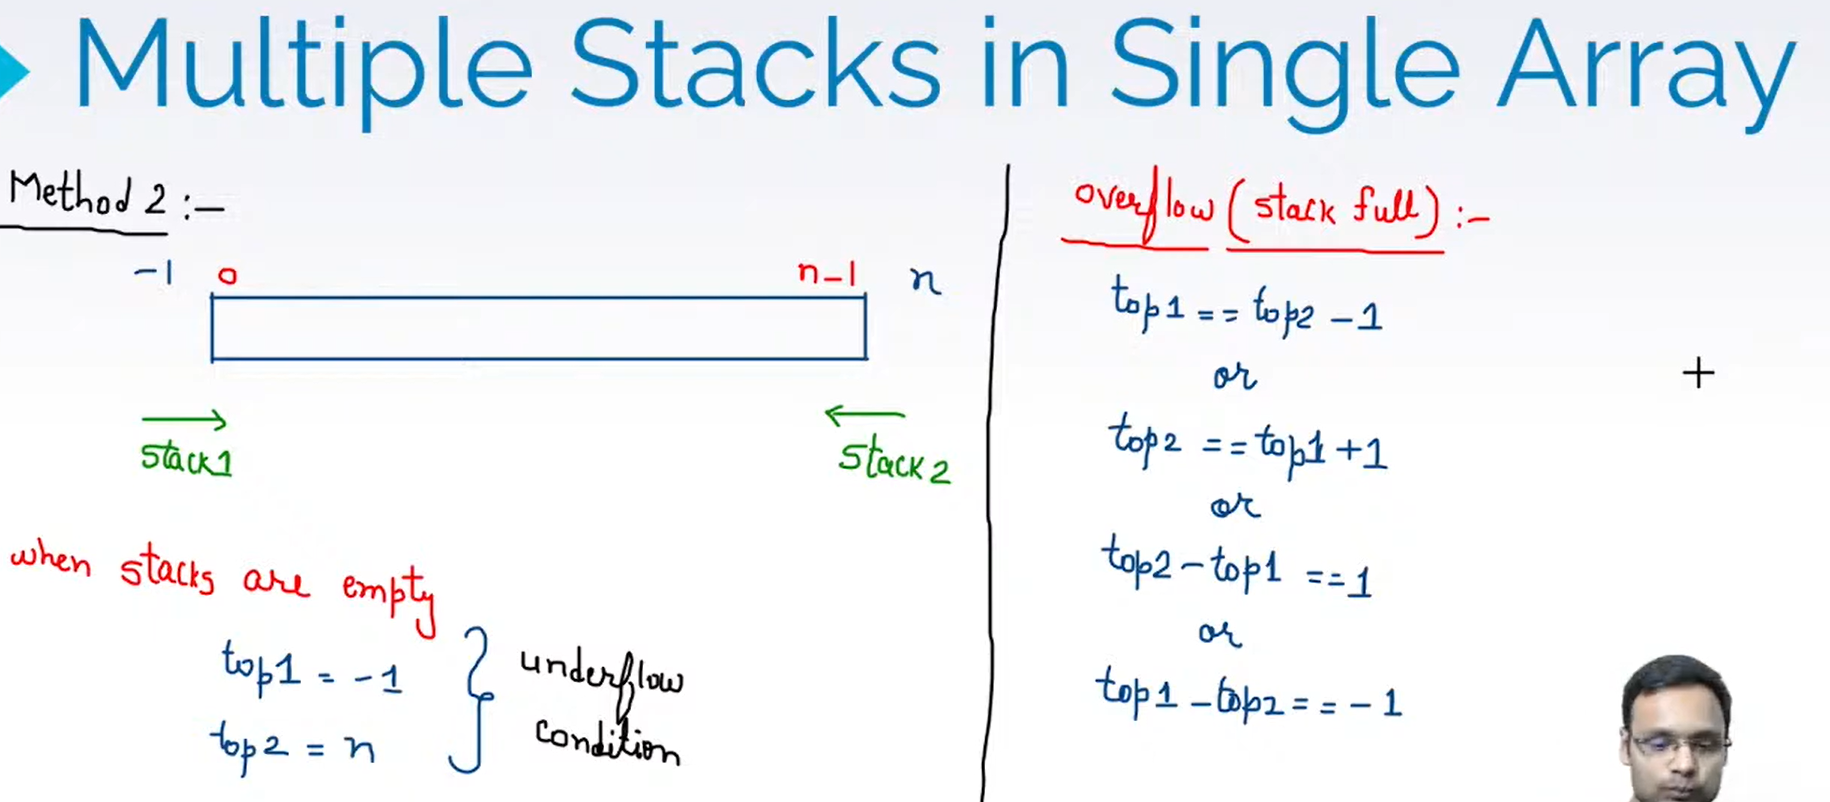 Multiple Stacks in Single Array
Method 2 :-
-1 0 n-1 n
stack1
stack2
when stacks are empty
top1 = -1
top2 = n
underflow
condition
overflow (stack full) :-
top1 == top2 - 1
or
top2 == top1 + 1
or
top2 - top1 == 1
or
top1 - top2 == -1